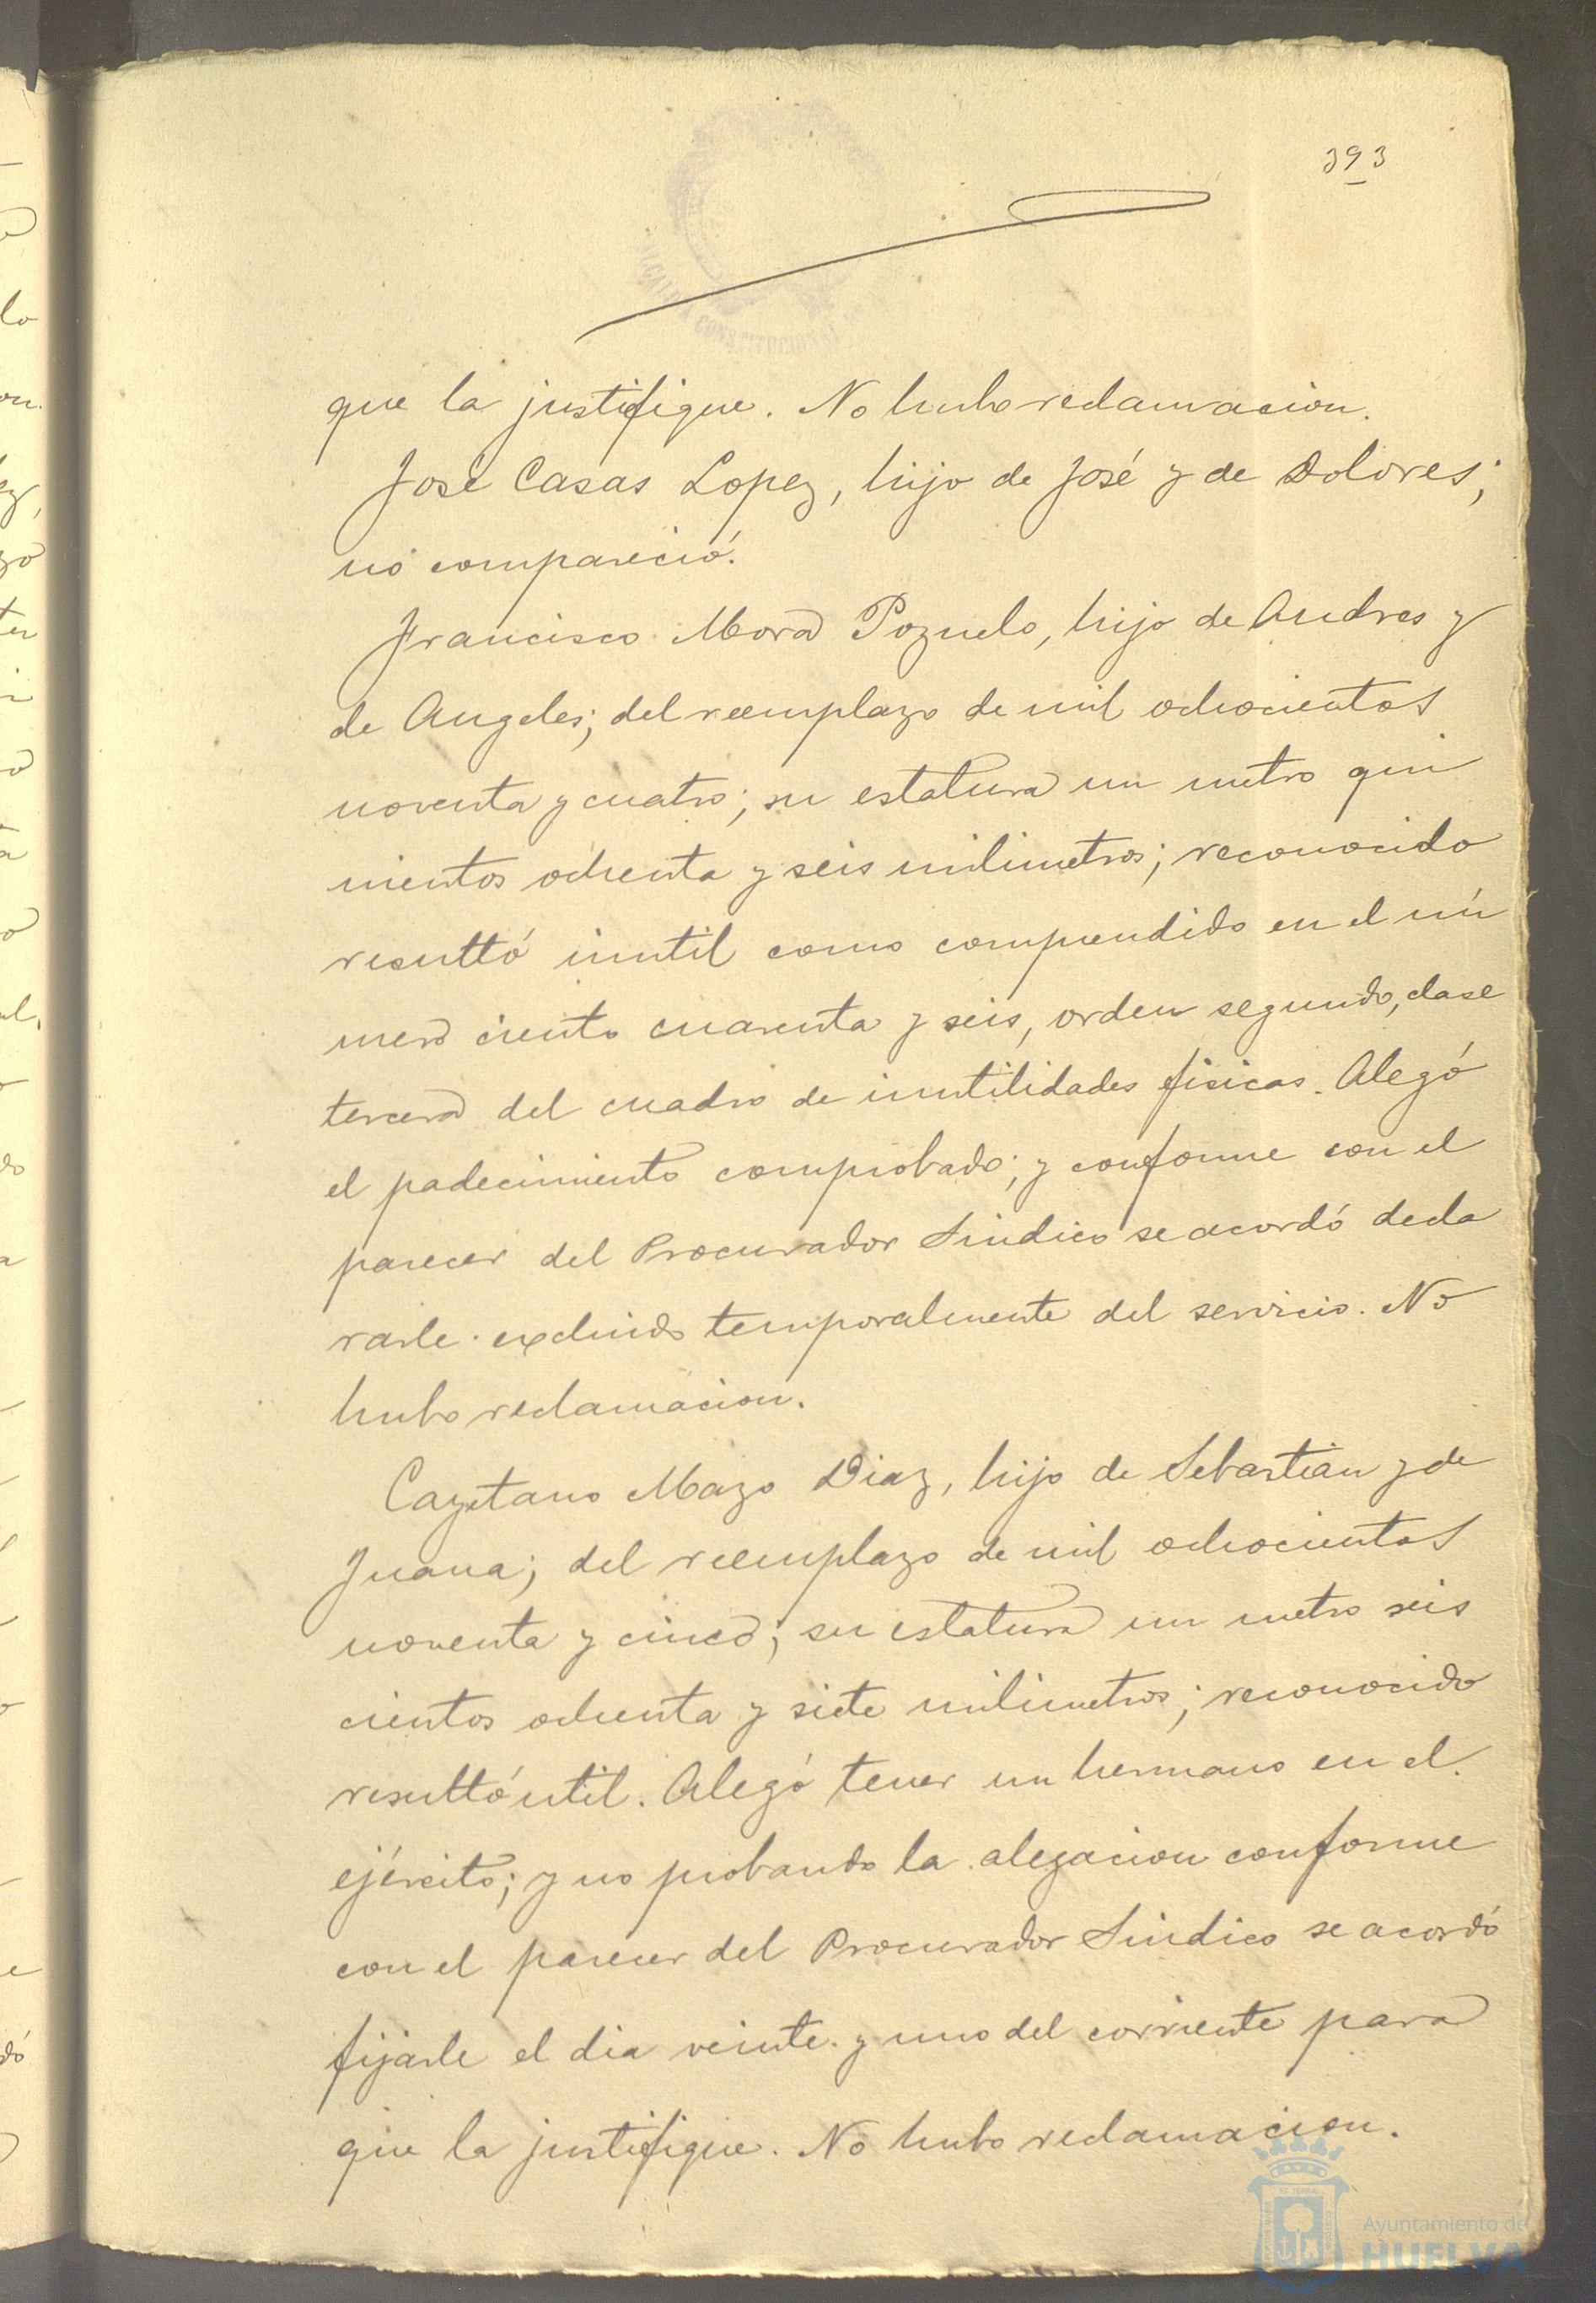 393
que la justifique. No hubo reclamacion.
José Casas Lopez, hijo de José y de Dolores;
no compareció.
Francisco Mora Pozuelo, hijo de Andres y
de Angeles; del reemplazo de mil ochocientos
noventa y cuatro; su estatura un metro qui
nientos ochenta y seis milimetros; reconocido
resultó inutil como comprendido en el nú
mero ciento cuarenta y seis, orden segundo, clase
tercera del cuadro de inutilidades fisicas. Alegó
el padecimiento comprobado; y conforme con el
parecer del Procurador Sindico se acordó decla
rarle excluido temporalmente del servicio. No
hubo reclamacion.
Cayetano Mazo Diaz, hijo de Sebastian y de
Juana; del reemplazo de mil ochocientos
noventa y cinco; su estatura un metro seis
cientos ochenta y siete milimetros; reconocido
resultó util. Alegó tener un hermano en el
ejército; y no probando la alegacion conforme
con el parecer del Procurador Sindico se acordó
fijarle el dia veinte y uno del corriente para
que la justifique. No hubo reclamacion.
Ayuntamiento de
HUELVA